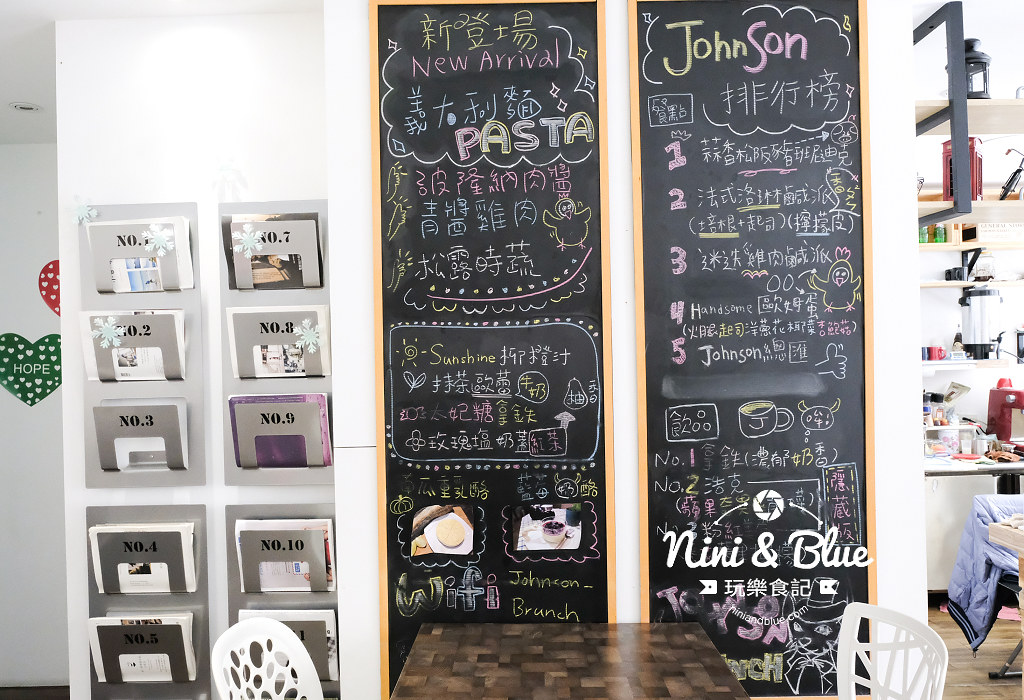 新登場
New Arrival
義大利麵
PASTA
波隆納肉醬
青醬雞肉
松露時蔬
Sunshine 柳橙汁
抹茶歐蕾 牛奶
太妃糖拿鐵
玫瑰塩奶蓋紅茶
香柚
南瓜重乳酪
藍莓奶酪
Wifi
Johnson-
Brunch
JohnSon
排行榜
餐點
1 蒜香松阪豬班尼迪克
2 法式洛林鹹派
(培根+起司)(檸檬皮)
3 迷迭雞肉鹹派
4 Handsome 歐姆蛋
(火腿起司洋蔥花椰菜杏鮑菇)
5 Johnson總匯
飲品
No.1 拿鐵(濃郁奶香)
No.2 浩克
蘋果
隱藏版
Nini & Blue
玩樂食記
niniandblue.com
NO.1
NO.2
NO.3
NO.4
NO.5
NO.7
NO.8
NO.9
NO.10
HOPE